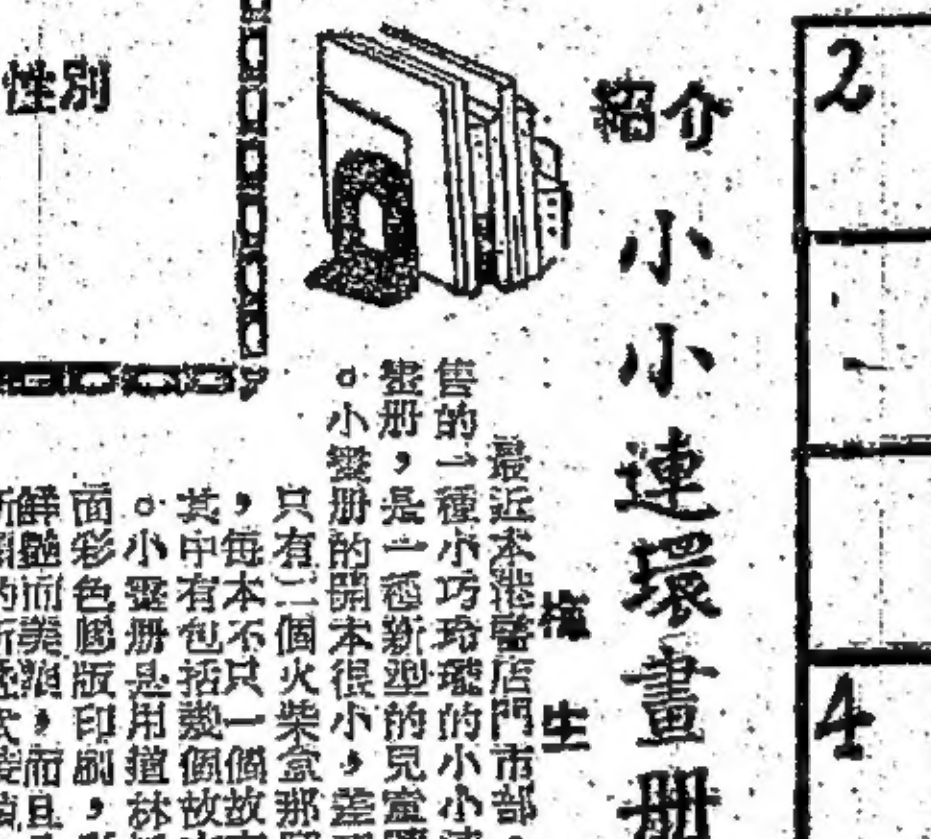 2
4
紹介
小小連環畫册
生
最近本港書店門市部
售的一種小巧玲瓏的小
畫册，是一種新型的兒童
。小畫册的開本很小，差
只有二個火柴盒那
，每本不只一個故
其中有包括幾個故
。小畫册是用道林
面彩色膠版印刷，
鮮艷而美麗，而且
性別